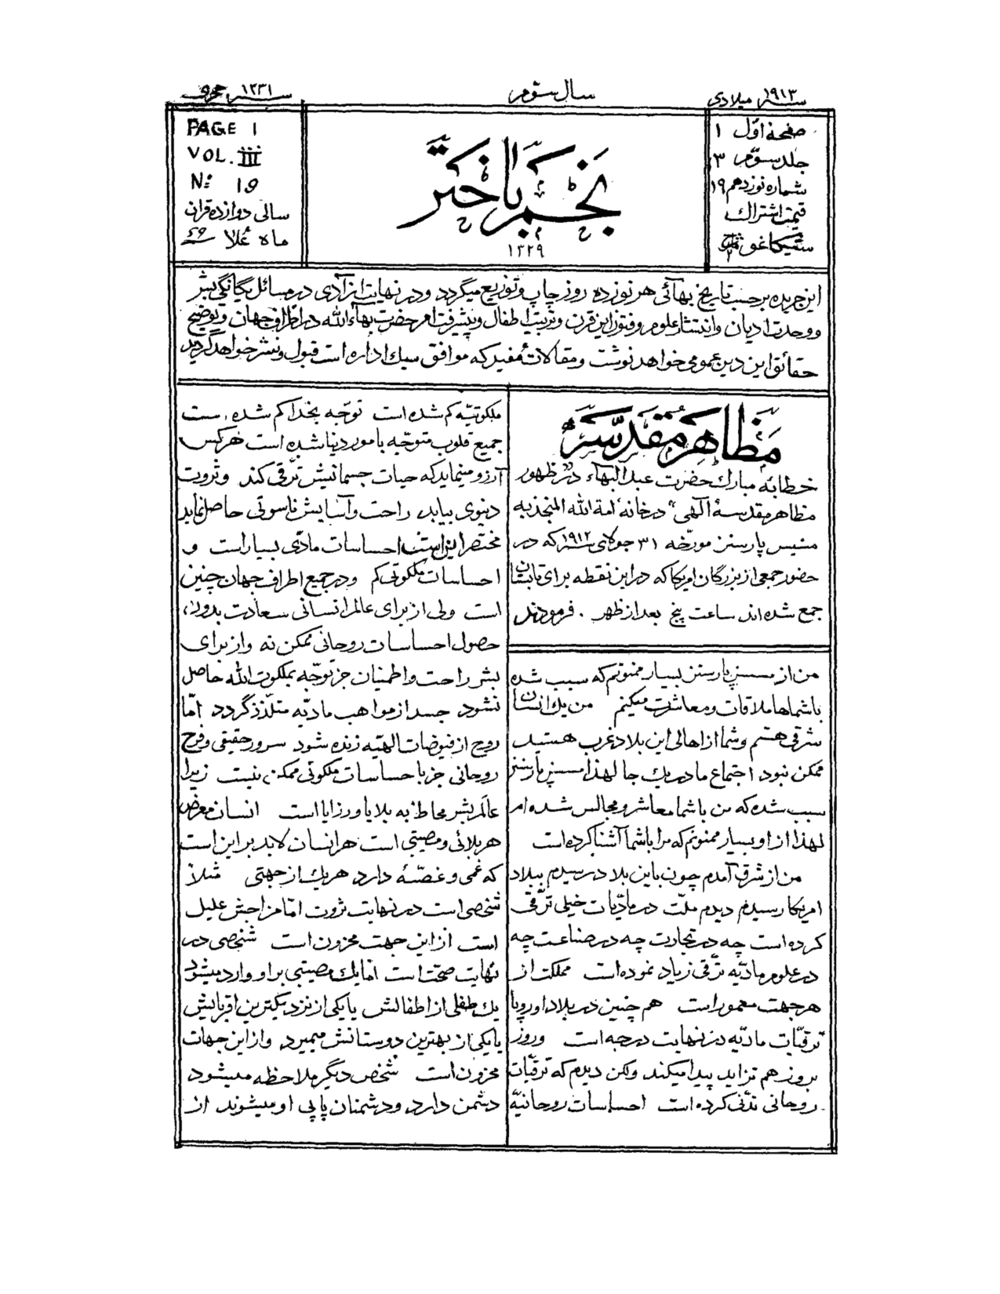 سنه ۱۹۱۳ میلادی
سال سوّم
سنه ۱۳۳۱ هجری
صفحهٔ اوّل ۱
جلد سوّم ۳
شماره نوزدهم ۱۹
قیمت اشتراک
شیکاغو
نجم باختر
۱۳۲۹
PAGE 1
VOL. III
Nº 19
سالی دوازده قران
ماه عُلا سنه ۶۹
این جریده برحسب تاریخ بهائی هر نوزده روز چاپ و توزیع میگردد و در نهایت ازادی در مسائل یگانگی بشر
و وحدت ادیان و انتشار علوم و فنون این قرن و تربیت اطفال و پیشرفت امر حضرت بهاءالله در اطراف جهان و توضیح
حقائق این دین عمومی خواهد نوشت و مقالات مفید که موافق سبک اداره است قبول و نشر خواهد گردید
مظاهر مقدّسه
خطابهٔ مبارک حضرت عبدالبهاء در "ظهور
مظاهر مقدسهٔ الهی" در خانهٔ امة الله المنجذبه
مسیس پارسنز مورّخه ۳۱ جولای سنه ۱۹۱۲ که در
حضور جمعی از بزرگان امریکا که در این نقطه برای تابستان
جمع شده اند ساعت پنج بعد از ظهر . فرمودند
من از مسیس پارسنز بسیار ممنونم که سبب شده
با شماها ملاقات و معاشرت میکنم من یک انسان
شرقی هستم و شما از اهالی این بلاد غرب هستید
ممکن نبود اجتماع ما در یک جا لهذا مسیس پارسنز
سبب شده که من با شما معاشر و مجالس شده ام
لهذا از او بسیار ممنونم که مرا با شما آشنا کرده است
من از شرق آمدم چون باین بلاد رسیدم ببلاد
امریکا رسیدم دیدم ملّت در مادّیات خیلی ترّقی
کرده است چه در تجارت چه در صناعت چه
در علوم مادیّه ترّقی زیاد نموده است مملکت از
هر جهت معمور است هم چنین در بلاد اوروپا
ترقیّات مادیّه در نهایت درجه است و روز
بروز هم تزاید پیدا میکند ولکن دیدم که ترقیّات
روحانی تدّنی کرده است احساسات روحانیّه
ملکوتیّه کم شده است توجّه بخدا کم شده است
جمیع قلوب متوجّه بامور دنیا شده است هر کس
آرزو مینماید که حیات جسمانیش ترّقی کند و ثروت
دنیوی بیابد راحت و آسایش ناسوتی حاصل نماید
مختصر این است احساسات مادّی بسیار است و
احساسات ملکوتی کم و در جمیع اطراف جهان چنین
است ولی از برای عالم انسانی سعادت بدون
حصول احساسات روحانی ممکن نه و از برای
بشر راحت و اطمینان جز توجّه بملکوت الله حاصل
نشود جسد از مواهب مادیّه متلذّذ گردد امّا
روح از فیوضات الهیّه زنده شود سرور حقیقی و فرح
روحانی جز باحساسات ملکوتی ممکن نیست زیرا
عالم بشر محاط به بلایا و رزایا است انسان معرض
هر بلائی و مصیبتی است هر انسان لابد بر این است
که غمی و غصّهٔ دارد هر یک از جهتی مثلاً
شخصی است در نهایت ثروت امّا مزاجش علیل
است از این جهت محزون است شخصی در
نهایت صحّت است امّا یک مصیبتی بر او وارد میشود
یک طفلی از اطفالش یا یکی از نزدیکترین اقربایش
یا یکی از بهترین دوستانش میمیرد و از این جهات
محزون است شخص دیگر ملاحظه میشود
دشمن دارد و دشمنان پاپی او میشوند از